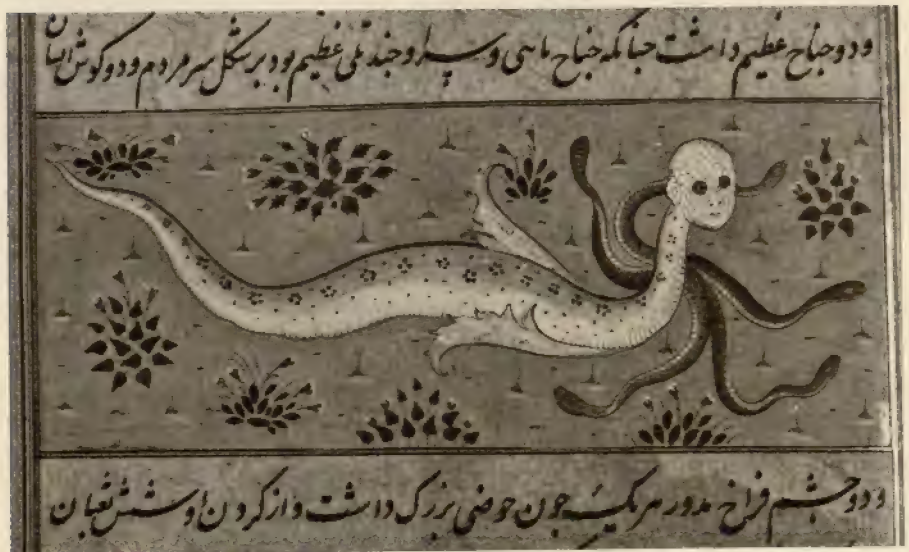 ودو جناح عظیم داشت جنانکه جناح ماهی وسر او جند تلی عظیم بود بر شکل سر مردم ودو کوش
ودو جشم فراخ مدور هر یک جون حوضی بزرک داشت واز کردن او شش ثعبان